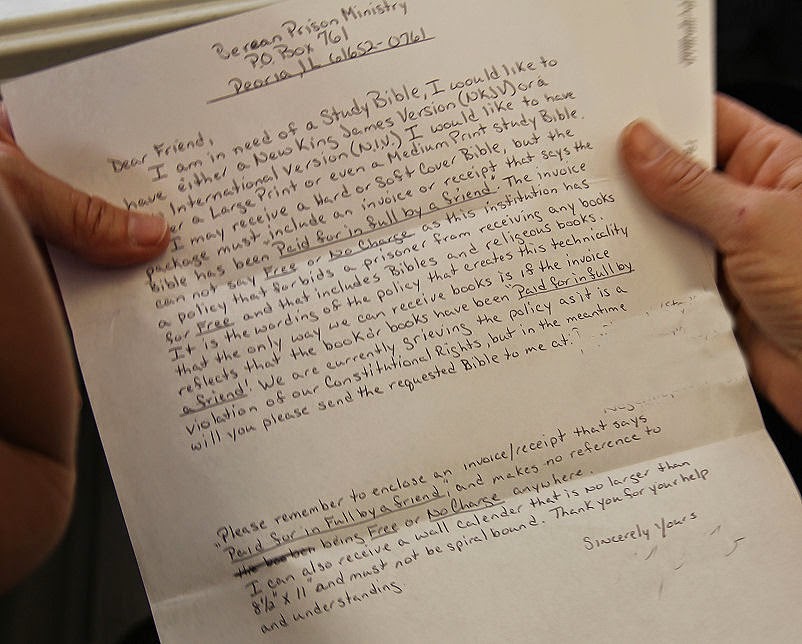 Berean Prison Ministry
P.O. Box 761
Peoria, IL 61652-0761
Dear Friend,
I am in need of a Study Bible, I would like to
have either a New King James Version (NKJV) or a
International Version (N.I.V.) I would like to have
a Large Print or even a Medium Print Study Bible.
I may receive a Hard or Soft Cover Bible, but the
package must include an invoice or receipt that says the
Bible has been Paid for in full by a friend. The invoice
can not say Free or No Charge as this institution has
a policy that forbids a prisoner from receiving any books
for Free and that includes Bibles and religeous books.
It is the wording of the policy that creates this technicality
that the only way we can receive books is if the invoice
reflects that the book or books have been "Paid for in full by
a friend". We are currently grieving the policy as it is a
violation of our Constitutional Rights, but in the meantime
will you please send the requested Bible to me at:
"Please remember to enclose an invoice/receipt that says
Paid for in Full by a friend", and makes no reference to
being Free or No Charge anywhere.
I can also receive a wall calender that is no larger than
8½" X 11" and must not be spiral bound. Thank you for your help
and understanding
Sincerely Yours